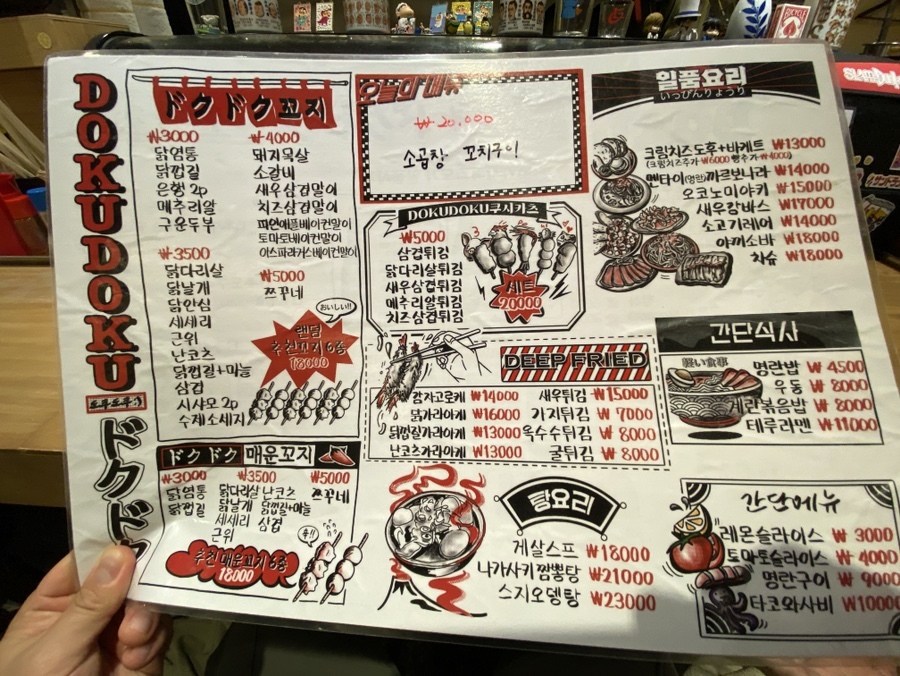 DOKUDOKU
ドクドク
ドクドク꼬지
₩3000
닭염통
닭껍질
은행 2p
메추리알
구운두부
₩3500
닭다리살
닭날개
닭안심
세세리
근위
난코츠
닭껍질+마늘
삼겹
시샤모 2p
수제소세지
₩4000
돼지목살
소갈비
새우삼겹말이
치즈삼겹말이
파인애플베이컨말이
토마토베이컨말이
아스파라거스베이컨말이
₩5000
쯔꾸네
おいしい!!
랜덤
추천꼬지 6종
18000
ドクドク 매운꼬지
₩3000
닭염통
닭껍질
₩3500
닭다리살 난코츠
닭날개 닭껍질+마늘
세세리 삼겹
근위
₩5000
쯔꾸네
추천 매운꼬지 6종
18000
오늘의 메뉴
₩20.000
소곱창 꼬치구이
DOKUDOKU쿠시카츠
₩5000
삼겹튀김
닭다리살튀김
새우삼겹튀김
메추리알튀김
치즈삼겹튀김
세트
20000
DEEP FRIED
감자고로케 ₩14000 새우튀김 ₩15000
닭가라아게 ₩16000 가지튀김 ₩7000
닭껍질가라아게 ₩13000 옥수수튀김 ₩8000
난코츠가라아게 ₩13000 굴튀김 ₩8000
탕요리
게살스프 ₩18000
나가사키짬뽕탕 ₩21000
스지오뎅탕 ₩23000
일품요리
いっぴんりょうり
크림치즈도후+바케트 ₩13000
(크림치즈추가 ₩6000 빵추가 ₩4000)
멘타이(명란)까르보나라 ₩14000
오코노미야키 ₩15000
새우감바스 ₩17000
소고기레어 ₩14000
야끼소바 ₩18000
차슈 ₩18000
간단식사
軽い食事
명란밥 ₩4500
우동 ₩8000
계란볶음밥 ₩8000
테루라멘 ₩11000
간단메뉴
레몬슬라이스 ₩3000
토마토슬라이스 ₩4000
명란구이 ₩9000
타코와사비 ₩10000
BICYCLE